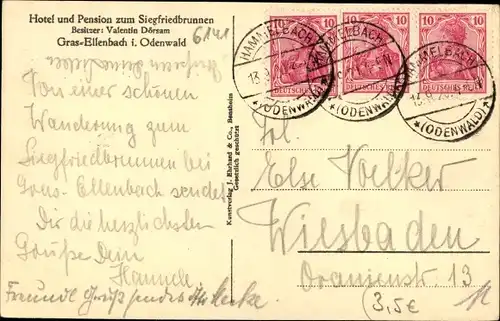 Hotel und Pension zum Siegfriedbrunnen
Besitzer: Valentin Dörsam
Gras-Ellenbach i. Odenwald
6141
Von einer schönen
Wanderung zum
Siegfriedbrunnen bei
Gras-Ellenbach sendet
Dir die herzlichsten
Grüße Dein
Hannele
Freundl Gruß sendet
Kunstverlag J. Ehrhard & Co., Bensheim
Gesetzlich geschützt
10 10 10
DEUTSCHES REICH DEUTSCHES REICH DEUTSCHES REICH
HAMMELBACH
(ODENWALD)
HAMMELBACH
(ODENWALD)
HAMMELBACH
(ODENWALD)
Frl.
Else Volker
Wiesbaden
Oranienstr 13
3,5€